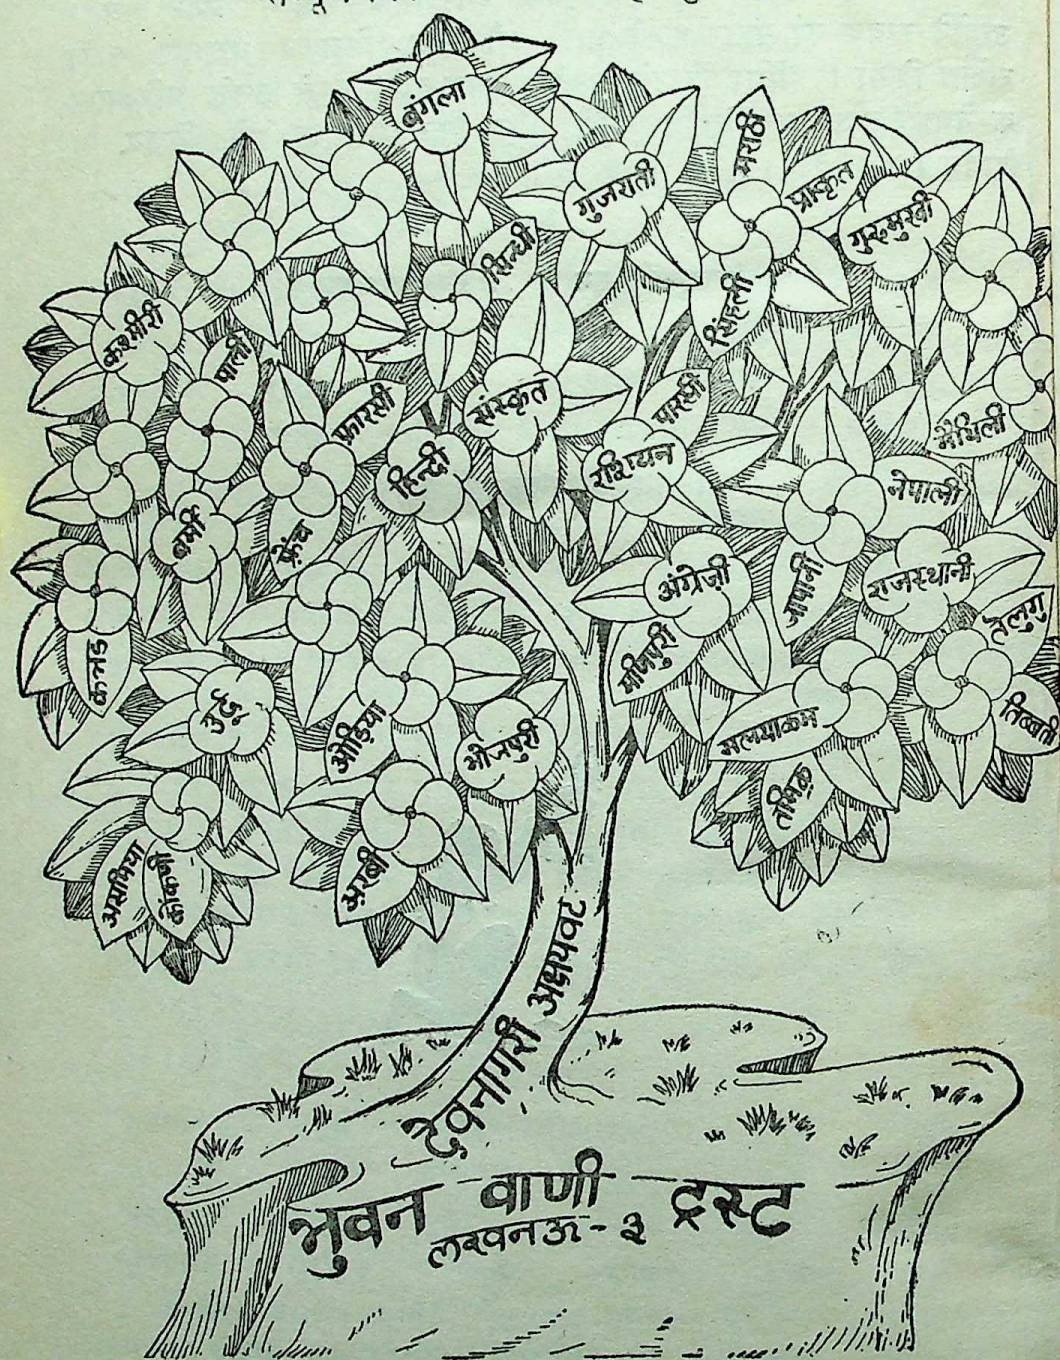 बंगला
मराठी
गुजराती
प्राकृत
गुरुमुखी
सिन्धी
सिंहली
कश्मीरी
पाली
फ़ारसी
संस्कृत
पारसी
मैथिली
हिन्दी
रशियन
नेपाली
बर्मी
फ़्रेंच
अंग्रेज़ी
जापानी
राजस्थानी
तेलुगु
मणिपुरी
कन्नड
उर्दू
ओड़िया
भोजपुरी
मलयाळम
तिब्बती
तमिळ
अरबी
असमिया
कोंकणी
देवनागरी अक्षयवट
भुवन वाणी ट्रस्ट
लखनऊ - ३